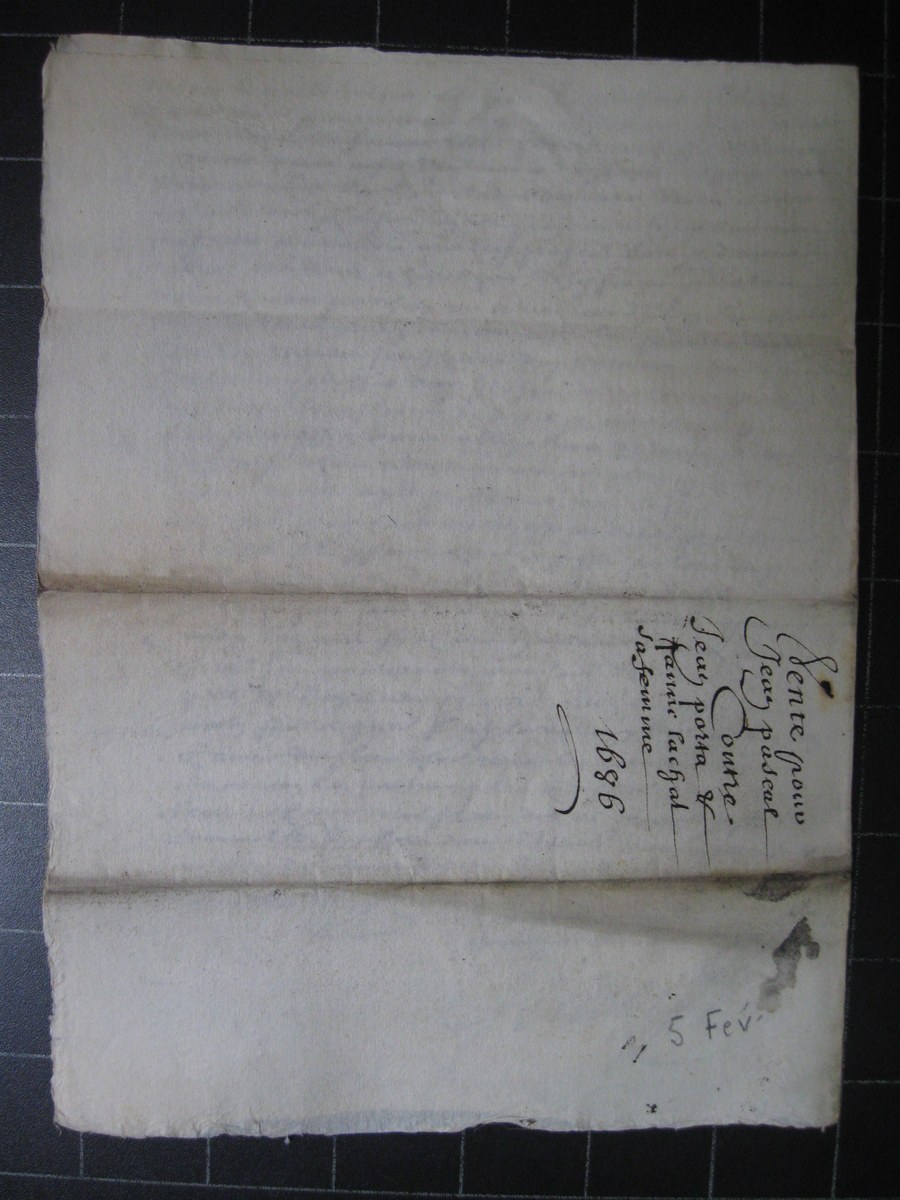 Vente pour
Jean pascal
Contre
Jean porta &
anne lachal
sa femme
1686
5 Fev.